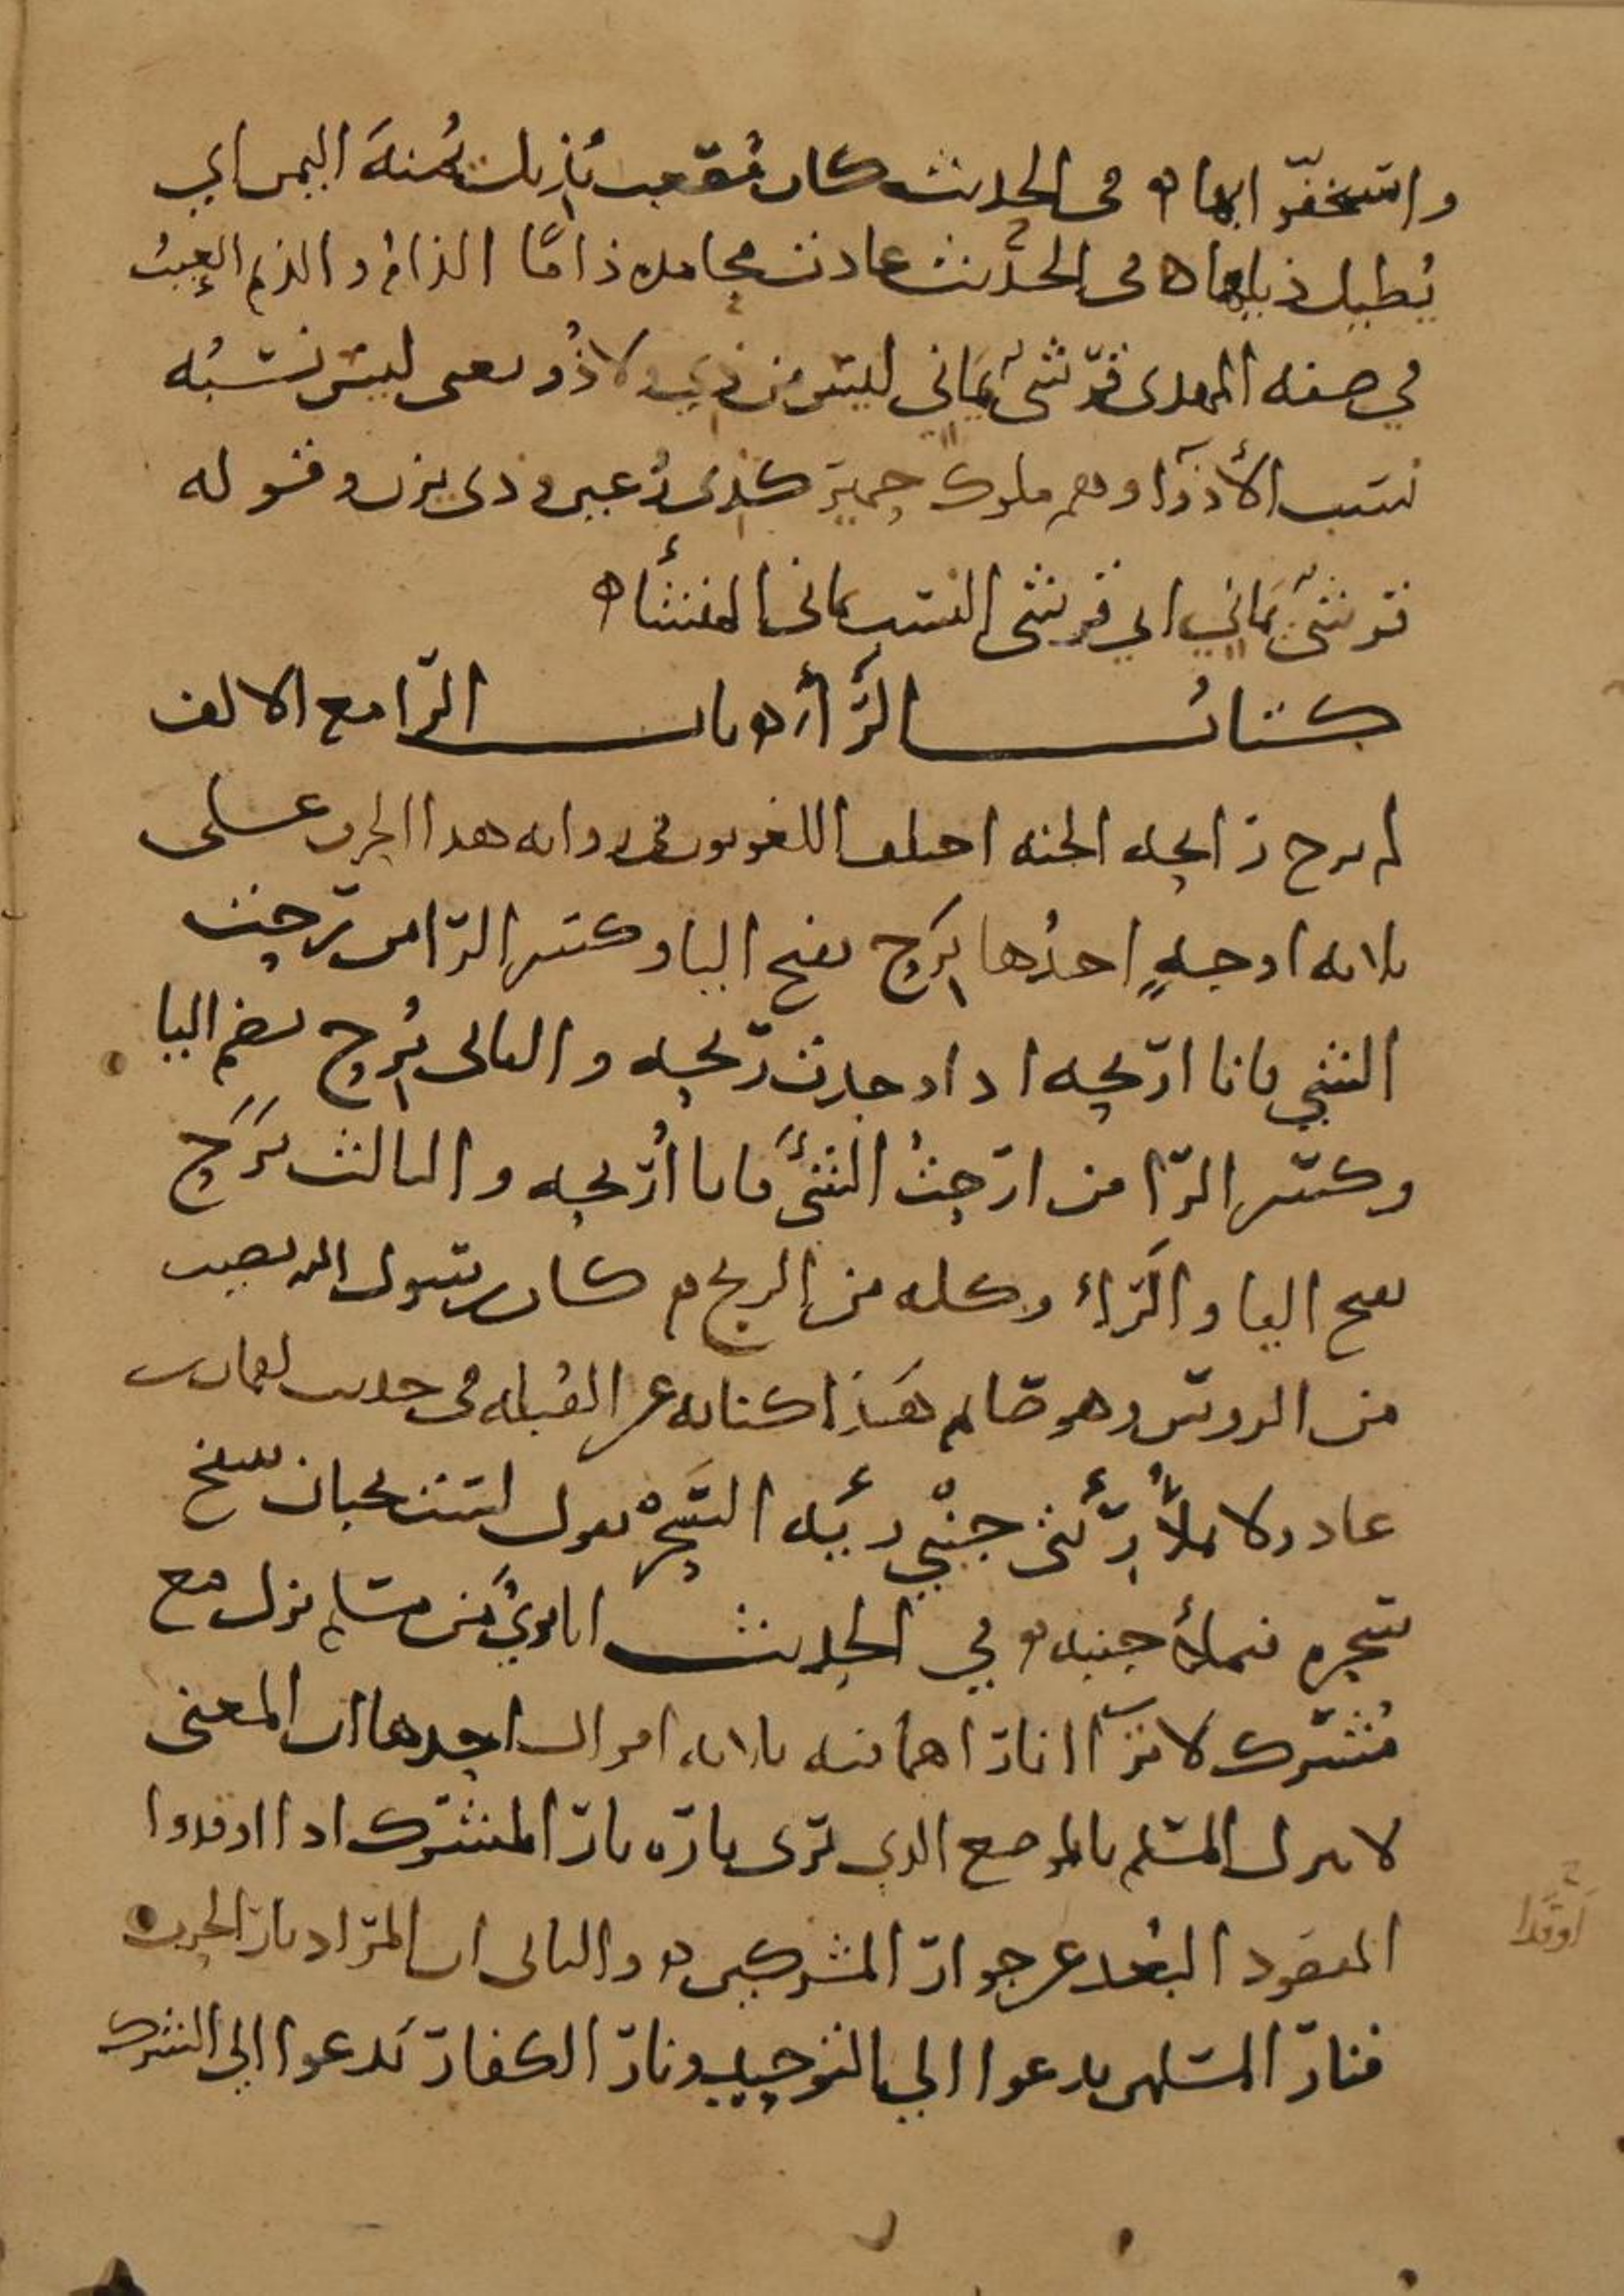 واستخفّوا بها ه في الحديث كان مصعب يُذيل يُمنةَ اليمن اي
يُطيل ذيلها ه في الحديث عادت محامده ذامًا الذام والذيم العيبُ
في صفه المهدي قرشيٌ يماني ليس من ذي ولا ذُو يعني ليس نسبُه
نسب الأذواء وهم ملوك حمير كذي رُعين وذي يزن وقوله
قرشيٌ يماني اي قرشي النسب يماني المنشأ ه
كتابُ الرّاء ه باب الرّا مع الالف
لم يرح رايحه الجنه اختلف اللغويون في روايه هذا الحرف على
ثلاثه اوجهٍ احدُها يَرِح بفتح اليا وكسر الرّا من رِحت
الشي فانا اريحه اذا وجدت ريحه والثاني يُرِح بضم اليا
وكسر الرّا من ارحتُ الشيَّ فانا اُريحه والثالث يَرَح
بفتح اليا والرّاء وكله من الريح ه كان رسول الله يصيب
من الروس وهو صايم هَذا كنايه عن القُبله في حديث لقمان بن
عاد ولا تملأُ رِئتي جنْبي رئيه السَحْر يقول لست بجبان ينتفخ
سَحره فيملأ جنبيه ه في الحديث انا بريٌ من مسلم نزل مع
مُشرك لا تراآ ناراهما فيه ثلاثه اقوال احدها ان المعنى
لا ينزل المسلم بالموضع الذي ترى ناره نار المشرك اذا اوقدوا
المقصود البُعد عن جوار المشركين ه والثاني ان المراد نار الحرب
فنار المسلمين يدعوا الي التوحيد ونار الكفار تَدعوا الي الشرك
اوقدا